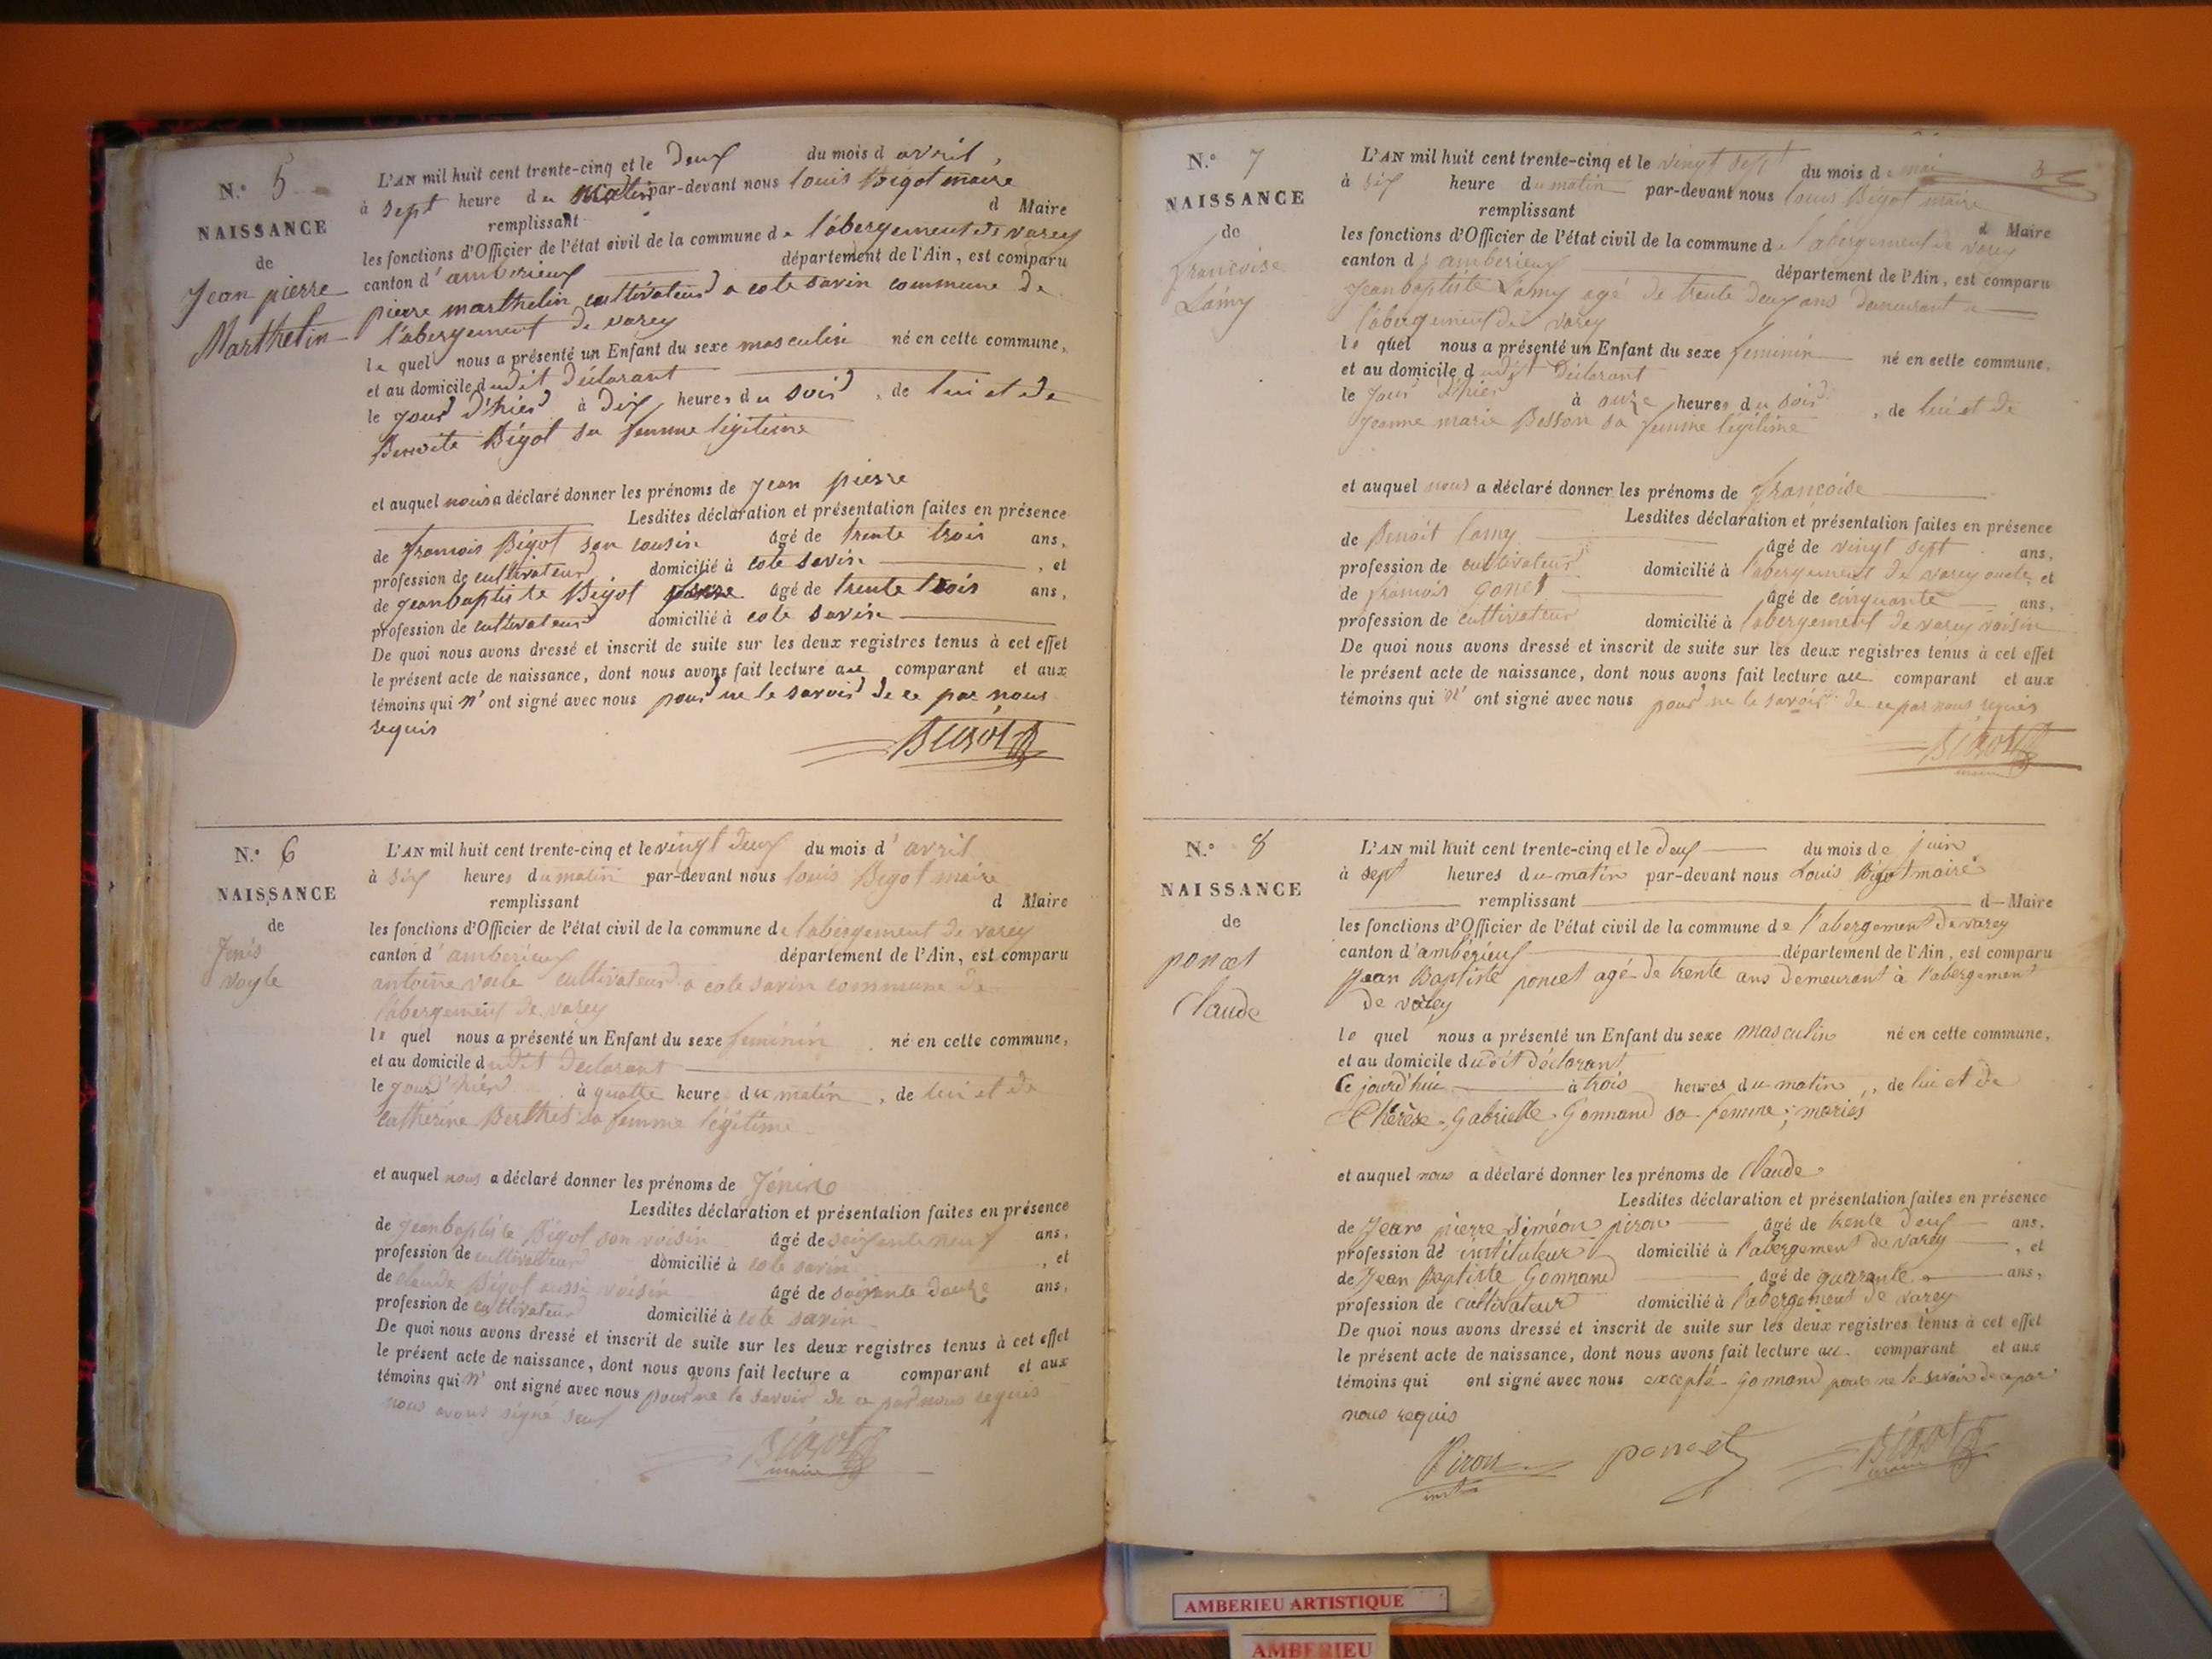 N.° 5
NAISSANCE
de
Jean pierre
Marthelin
L'AN mil huit cent trente-cinq et le deux du mois d avril,
à sept heure du matin par-devant nous louis Bigot maire
remplissant d Maire
les fonctions d'Officier de l'état civil de la commune de l'abergement de varey
canton d'amberieux département de l'Ain, est comparu
pierre marthelin cultivateur a cote savin commune de
l'abergement de varey
le quel nous a présenté un Enfant du sexe masculin né en cette commune,
et au domicile dudit déclarant
le jour d'hier à dix heures du soir, de lui et de
Benoite Bigot sa femme légitime
et auquel nous a déclaré donner les prénoms de jean pierre
Lesdites déclaration et présentation faites en présence
de francois Bigot son cousin âgé de trente trois ans,
profession de cultivateur domicilié à cote savin, et
de jean baptiste Bigot âgé de trente trois ans,
profession de cultivateur domicilié à cote savin
De quoi nous avons dressé et inscrit de suite sur les deux registres tenus à cet effet
le présent acte de naissance, dont nous avons fait lecture au comparant et aux
témoins qui n'ont signé avec nous pour ne le savoir de ce par nous
requis
Bigot
N.° 6
NAISSANCE
de
Jenis
voyle
L'AN mil huit cent trente-cinq et le vingt deux du mois d'avril
à six heures du matin par-devant nous louis Bigot maire
remplissant d Maire
les fonctions d'Officier de l'état civil de la commune de l'abergement de varey
canton d'amberieux département de l'Ain, est comparu
antoine voile cultivateur a cote savin commune de
l'abergement de varey
le quel nous a présenté un Enfant du sexe feminin né en cette commune,
et au domicile dudit declarant
le jour d'hier à quatre heure du matin, de lui et de
catherine Berthet sa femme légitime
et auquel nous a déclaré donner les prénoms de
Lesdites déclaration et présentation faites en présence
de jean baptiste Bigot son voisin âgé de soixante neuf ans,
profession de cultivateur domicilié à cote savin, et
de claude Bigot aussi voisin âgé de soixante douze ans,
profession de cultivateur domicilié à cote savin
De quoi nous avons dressé et inscrit de suite sur les deux registres tenus à cet effet
le présent acte de naissance, dont nous avons fait lecture a comparant et aux
témoins qui n'ont signé avec nous pour ne le savoir de ce par nous requis
nous avons signé seul
Bigot
maire
N.° 7
NAISSANCE
de
francoise
Lamy
3
L'AN mil huit cent trente-cinq et le vingt sept du mois de mai
à six heure du matin par-devant nous louis Bigot maire
remplissant d Maire
les fonctions d'Officier de l'état civil de la commune de l'abergement de varey
canton d'amberieux département de l'Ain, est comparu
jean baptiste Lamy agé de trente deux ans demeurant a
l'abergement de varey
le quel nous a présenté un Enfant du sexe feminin né en cette commune,
et au domicile dudit déclarant
le jour d'hier à onze heures du soir, de lui et de
jeanne marie Besson sa femme légitime
et auquel nous a déclaré donner les prénoms de francoise
Lesdites déclaration et présentation faites en présence
de Benoit lamy âgé de vingt sept ans,
profession de cultivateur domicilié à l'abergement de varey oncle, et
de francois gonet âgé de cinquante ans,
profession de cultivateur domicilié à l'abergement de varey voisin
De quoi nous avons dressé et inscrit de suite sur les deux registres tenus à cet effet
le présent acte de naissance, dont nous avons fait lecture au comparant et aux
témoins qui n'ont signé avec nous pour ne le savoir de ce par nous requis
Bigot
maire
N.° 8
NAISSANCE
de
poncet
Claude
L'AN mil huit cent trente-cinq et le deux du mois de juin
à sept heures du matin par-devant nous Louis Bigot maire
remplissant d Maire
les fonctions d'Officier de l'état civil de la commune de l'abergement de varey
canton d'ambérieux département de l'Ain, est comparu
Jean Baptiste poncet agé de trente ans demeurant à l'abergement
de varey
le quel nous a présenté un Enfant du sexe masculin né en cette commune,
et au domicile dudit déclarant
Ce jourd'hui à trois heures du matin, de lui et de
Thérèse Gabrielle Gonnand sa femme; mariés
et auquel nous a déclaré donner les prénoms de Claude
Lesdites déclaration et présentation faites en présence
de Jean pierre Siméon piron âgé de trente deux ans,
profession de instituteur domicilié à l'abergement de varey, et
de Jean Baptiste Gonnand âgé de quarante ans,
profession de cultivateur domicilié à l'abergement de varey
De quoi nous avons dressé et inscrit de suite sur les deux registres tenus à cet effet
le présent acte de naissance, dont nous avons fait lecture au comparant et aux
témoins qui ont signé avec nous excepté Gonnand pour ne le savoir de ce par
nous requis
Piron poncet Bigot
inst maire
AMBERIEU ARTISTIQUE
AMBERIEU